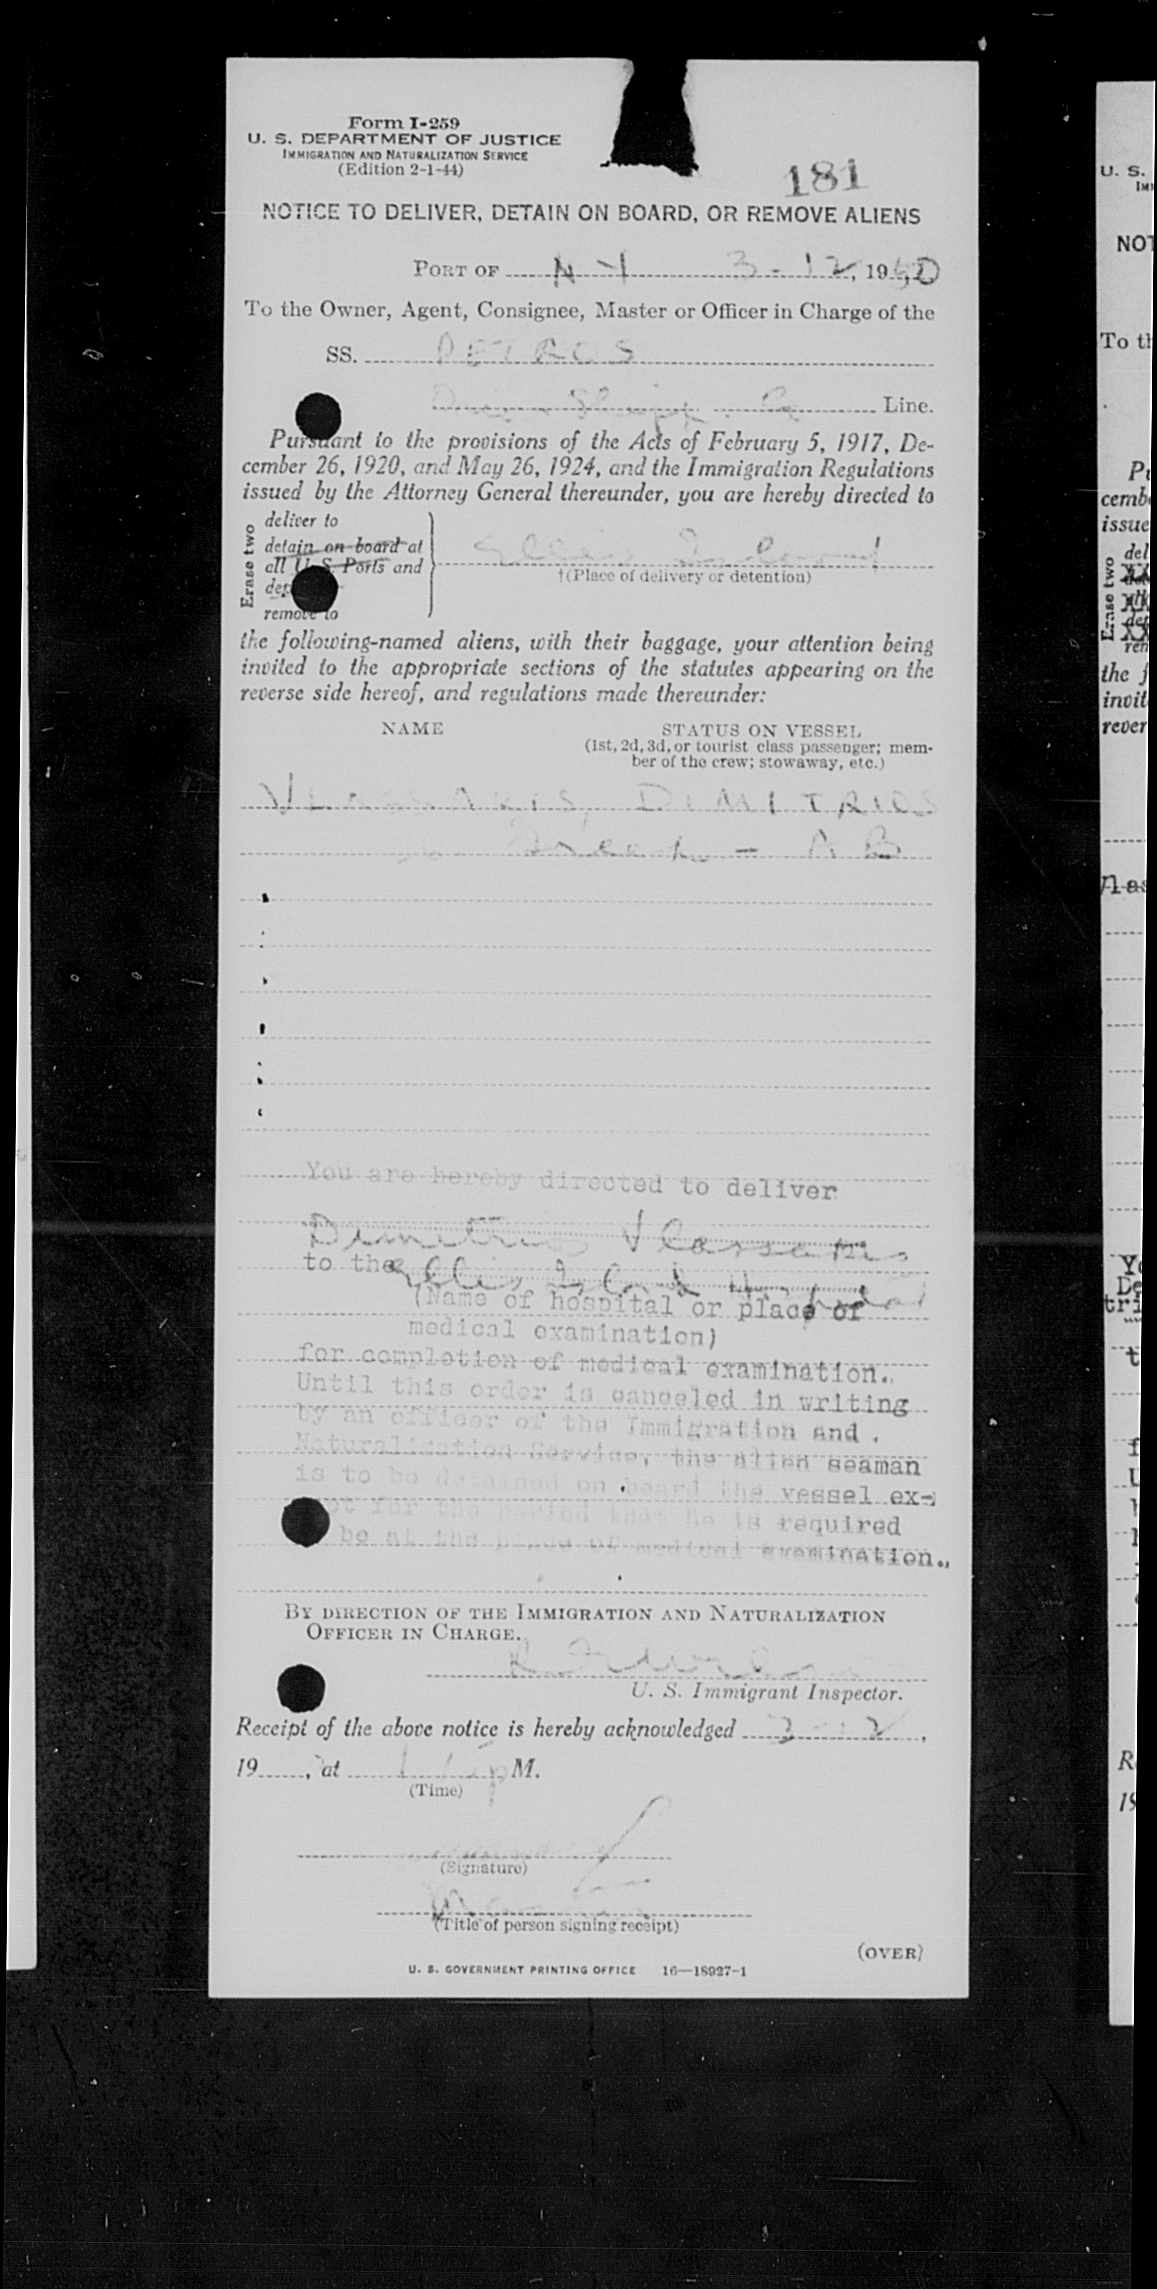 Form I-259
U. S. DEPARTMENT OF JUSTICE
IMMIGRATION AND NATURALIZATION SERVICE
(Edition 2-1-44)
181
NOTICE TO DELIVER, DETAIN ON BOARD, OR REMOVE ALIENS
PORT OF N Y 3-12, 1950
To the Owner, Agent, Consignee, Master or Officer in Charge of the
SS. PETROS
Line.
Pursuant to the provisions of the Acts of February 5, 1917, De-
cember 26, 1920, and May 26, 1924, and the Immigration Regulations
issued by the Attorney General thereunder, you are hereby directed to
Erase two
deliver to
detain on board at
all U S Ports and
remove to
Ellis Island
†(Place of delivery or detention)
the following-named aliens, with their baggage, your attention being
invited to the appropriate sections of the statutes appearing on the
reverse side hereof, and regulations made thereunder:
NAME STATUS ON VESSEL
(1st, 2d, 3d, or tourist class passenger; mem-
ber of the crew; stowaway, etc.)
VLASSAKIS, DIMITRIOS
Greek - AB
You are hereby directed to deliver
Dimitrios Vlassakis
to the Ellis Island Hospital
(Name of hospital or place of
medical examination)
for completion of medical examination.
Until this order is canceled in writing
by an officer of the Immigration and
Naturalization Service, the alien seaman
is to be detained on board the vessel ex-
for the period that he is required
be at the place of medical examination.
BY DIRECTION OF THE IMMIGRATION AND NATURALIZATION
OFFICER IN CHARGE.
U. S. Immigrant Inspector.
Receipt of the above notice is hereby acknowledged 3-12,
19 , at M.
(Time)
(Signature)
(Title of person signing receipt)
(OVER)
U. S. GOVERNMENT PRINTING OFFICE 16—18927-1